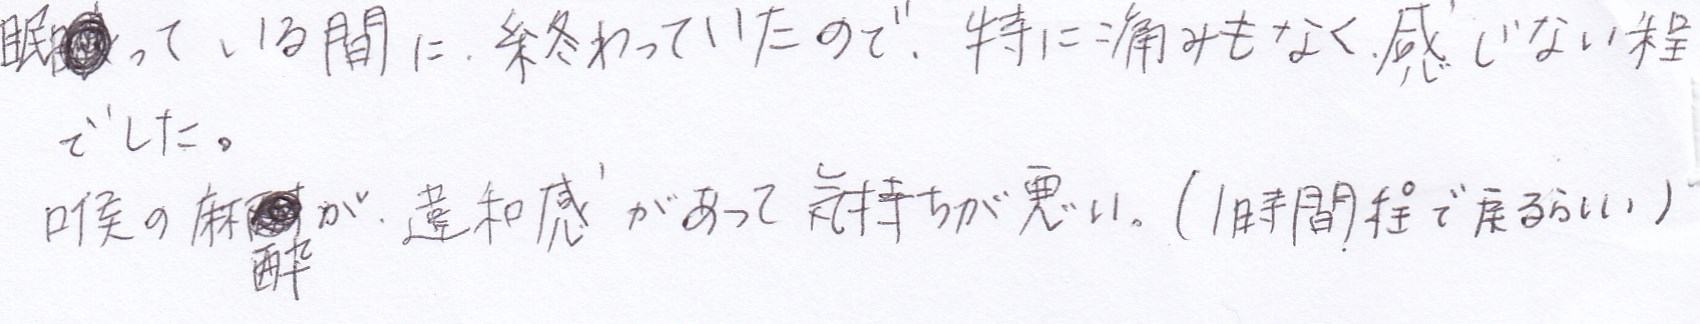 眠っている間に、終わっていたので、特に痛みもなく、感じない程
でした。
喉の麻酔が、違和感があって気持ちが悪い。(1時間程で戻るらしい)